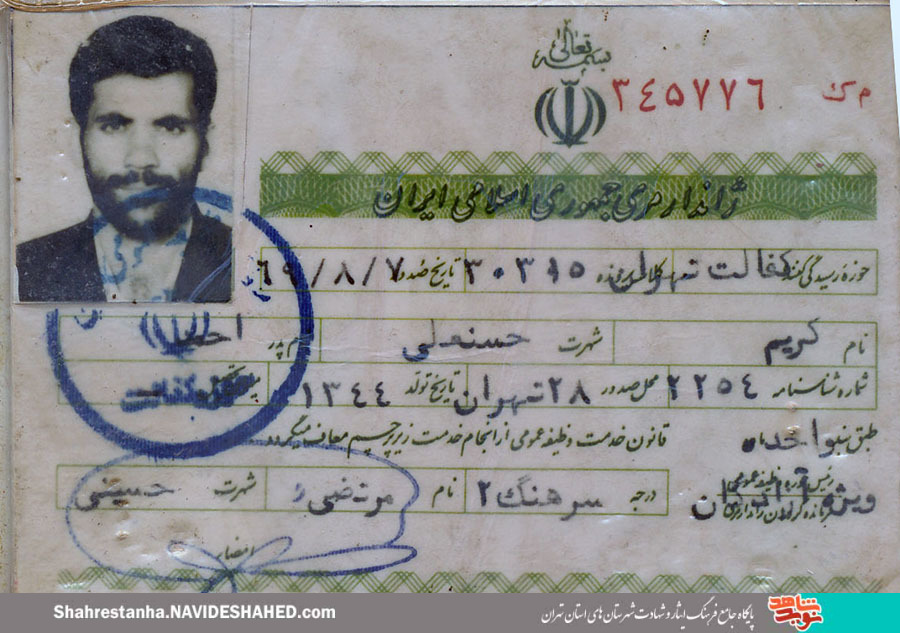 بسمه تعالی
م ک ۳۴۵۷۷۶
ژاندارمری جمهوری اسلامی ایران
حوزه رسیدگی کننده کفالت تهران کلاسه پرونده ۳۰۳۱۵ تاریخ صدور ۶۹/۸/۷
نام کریم شهرت حسنعلی نام پدر
شماره شناسنامه ۲۲۵۴ محل صدور ۲۸ تهران تاریخ تولد ۱۳۴۴
طبق بند واحده ماده قانون خدمت وظیفه عمومی از انجام خدمت زیر پرچم معاف میگردد
رئیس حوزه وظیفه عمومی
ویژه
درجه سرهنگ ۲ نام مرتضی شهرت حسینی
امضاء
Shahrestanha.NAVIDESHAHED.com
پایگاه جامع فرهنگ ایثار و شهادت شهرستان های استان تهران
نوید شاهد